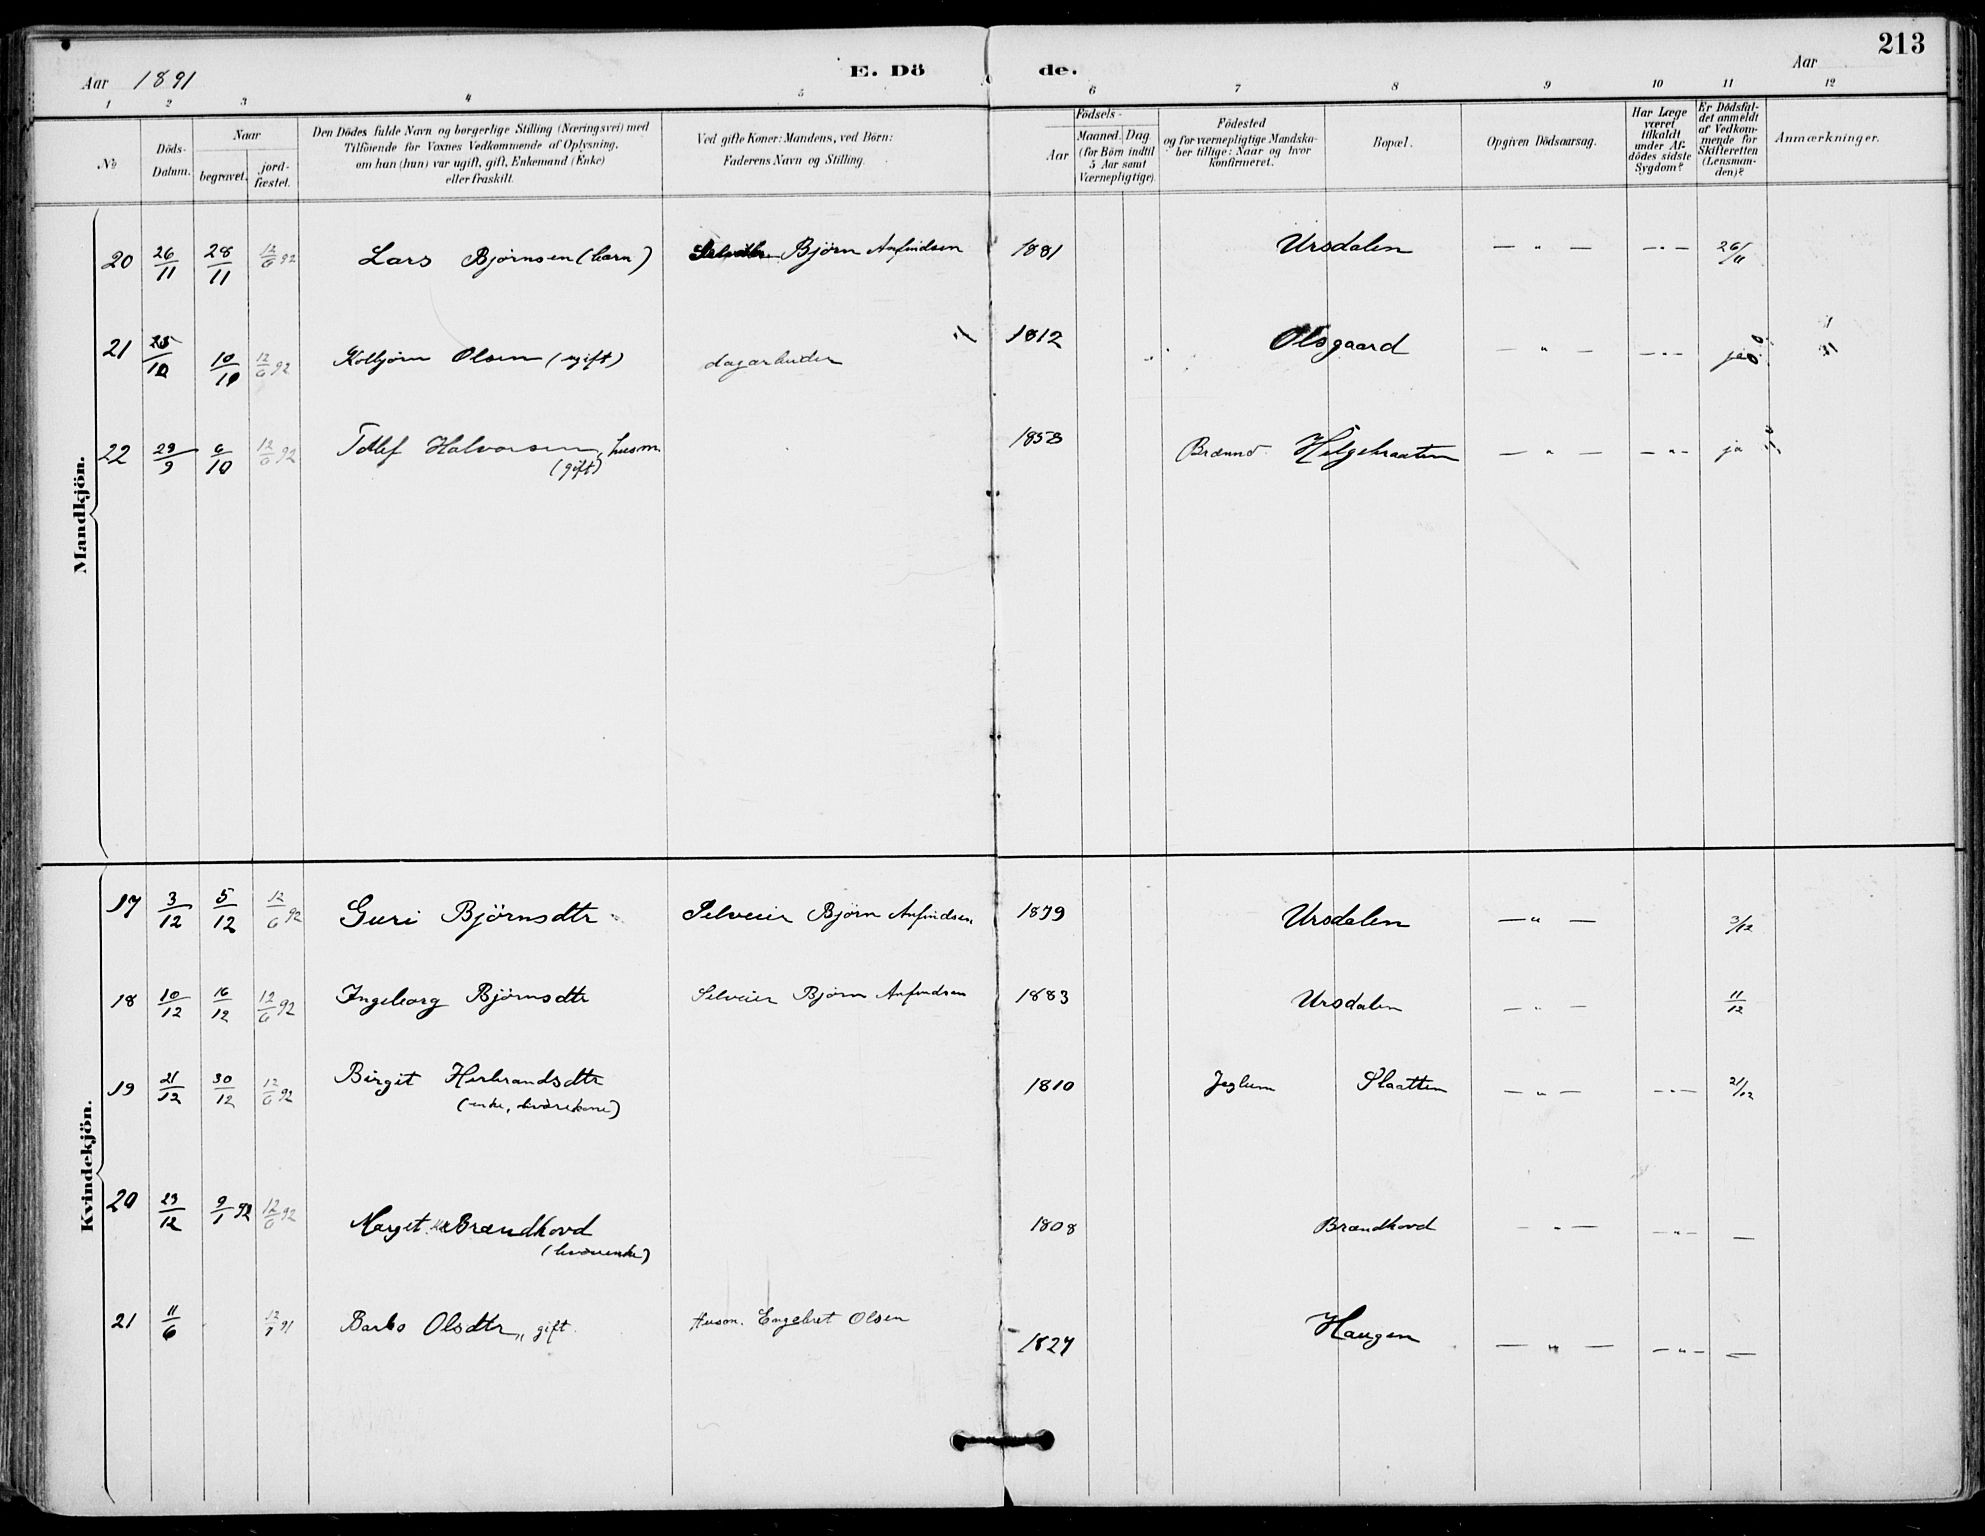 213
Aar 1891 E. Dö de. Aar
1 2 3 4 5 6 7 8 9 10 11 12
No
Döds-Datum.
Naar begravet. jord-fæstet.
Den Dödes fulde Navn og borgerlige Stilling (Næringsvei) med
Tilföiende for Voxnes Vedkommende af Oplysning,
om han (hun) var ugift, gift, Enkemand (Enke)
eller fraskilt.
Ved gifte Koner: Mandens, ved Börn:
Faderens Navn og Stilling.
Födsels-
Aar Maaned. Dag
(for Börn indtil
5 Aar samt
Værnepligtige).
Födested
og for værnepligtige Mandska-
ber tillige: Naar og hvor
konfirmeret.
Bopæl.
Opgiven Dödsaarsag.
Har Læge
været
tilkaldt
under Af-
dödes sidste
Sygdom?
Er Dödsfal-
det anmeldt
af Vedkom-
mende for
Skifteretten
(Lensman-
den)?
Anmærkninger.
Mandkjön.
20 26/11 28/11 12/6 92 Lars Björnsen (barn) Björn Anfindsen 1881 Ursdalen — " — — " — 26/11
21 25/10 10/10 12/6 92 Kolbjörn Olsen (ugift) dagarbeider " 1812 Olsgaard — " — — " — ja
22 29/9 6/10 12/6 92 Tollef Halvorsen, husm. 1858 Brænnd Helgebraaten — " — — " — ja
(gift)
Kvindekjön.
17 3/12 5/12 12/6 92 Guri Björnsdtr Selveier Björn Anfindsen 1879 Ursdalen — " — 3/12
18 10/12 16/12 12/6 92 Ingeborg Björnsdtr Selveier Björn Anfindsen 1883 Ursdalen — " — 11/12
19 21/12 30/12 12/6 92 Birgit Herbrandsdtr 1810 Jeglum Slaatten — " — — " — 21/12
(enke, kvårekone)
20 29/12 9/1 92 12/6 92 Marget Brændhovd 1808 Brændhovd — " — — " — —
21 11/6 91 Barbo Olsdtr, gift. Husm. Engebret Olsen 1827 Haugen — " — — " — —